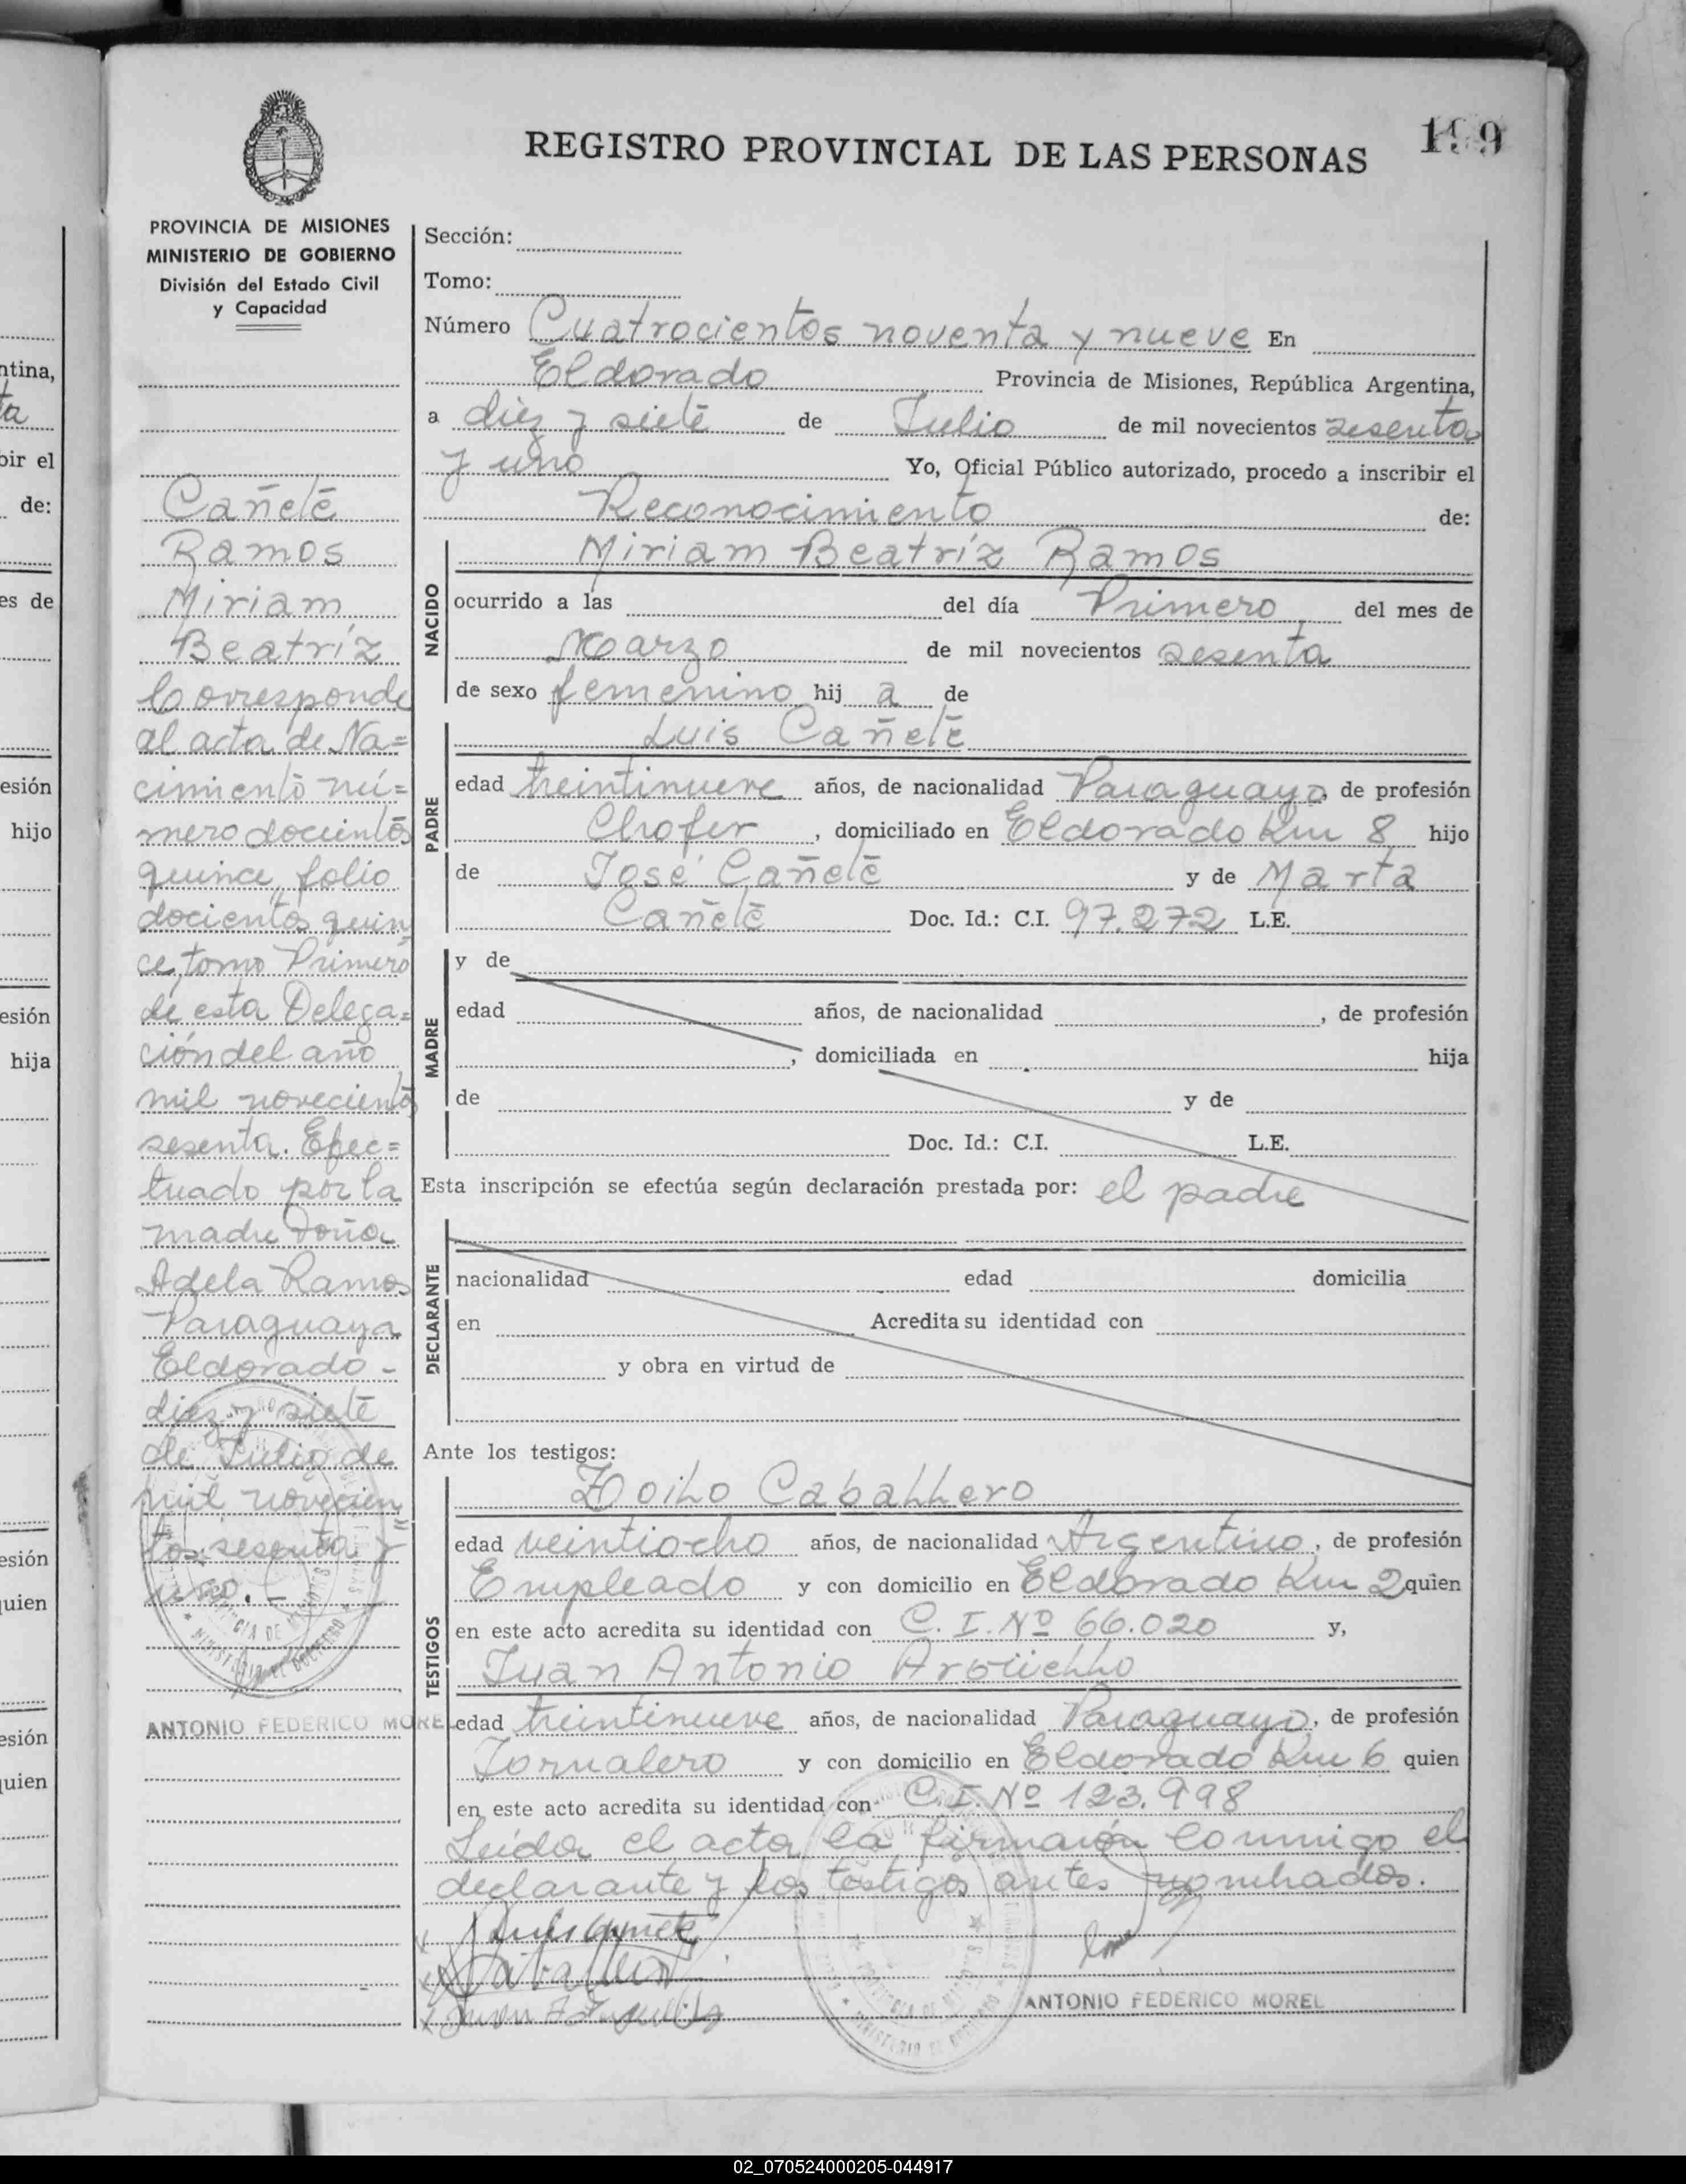 199
REGISTRO PROVINCIAL DE LAS PERSONAS
PROVINCIA DE MISIONES
MINISTERIO DE GOBIERNO
División del Estado Civil
y Capacidad
Cañete
Ramos
Miriam
Beatríz
Corresponde
al acta de Na=
cimiento nú=
mero docientos
quince, folio
docientos quin=
ce, tomo Primero
de esta Delega=
ción del año
mil novecientos
sesenta. Efec=
tuado por la
madre Doña
Adela Ramos
Paraguaya
Eldorado -
diez y siete
de Julio de
mil novecien=
tos sesenta y
uno. -
ANTONIO FEDERICO MOREL
Sección:
Tomo:
Número Cuatrocientos noventa y nueve En
Eldorado Provincia de Misiones, República Argentina,
a diez y siete de Julio de mil novecientos sesenta
y uno Yo, Oficial Público autorizado, procedo a inscribir el
Reconocimiento de:
NACIDO
Miriam Beatríz Ramos
ocurrido a las del día Primero, del mes de
Marzo de mil novecientos sesenta
de sexo femenino hij a de
PADRE
Luis Cañete
edad treintinueve años, de nacionalidad Paraguayo, de profesión
Chofer, domiciliado en Eldorado Km 8 hijo
de José Cañete y de Marta
Cañete Doc. Id.: C.I. 97.272 L.E.
MADRE
y de
edad años, de nacionalidad , de profesión
, domiciliada en hija
de y de
Doc. Id.: C.I. L.E.
Esta inscripción se efectúa según declaración prestada por: el padre
DECLARANTE
nacionalidad edad domicilia
en Acredita su identidad con
y obra en virtud de
Ante los testigos:
TESTIGOS
Zoilo Caballero
edad veintiocho años, de nacionalidad Argentino, de profesión
Empleado y con domicilio en Eldorado Km 2 quien
en este acto acredita su identidad con C. I. Nº 66.020 y,
Juan Antonio Argüello
edad treintinueve años, de nacionalidad Paraguayo, de profesión
Jornalero y con domicilio en Eldorado Km 6 quien
en este acto acredita su identidad con C.I. Nº 123.998
Leída el acta la firmaron conmigo el
declarante y los testigos antes nombrados.
Luis Cañete
Caballero
ANTONIO FEDERICO MOREL
02_070524000205-044917